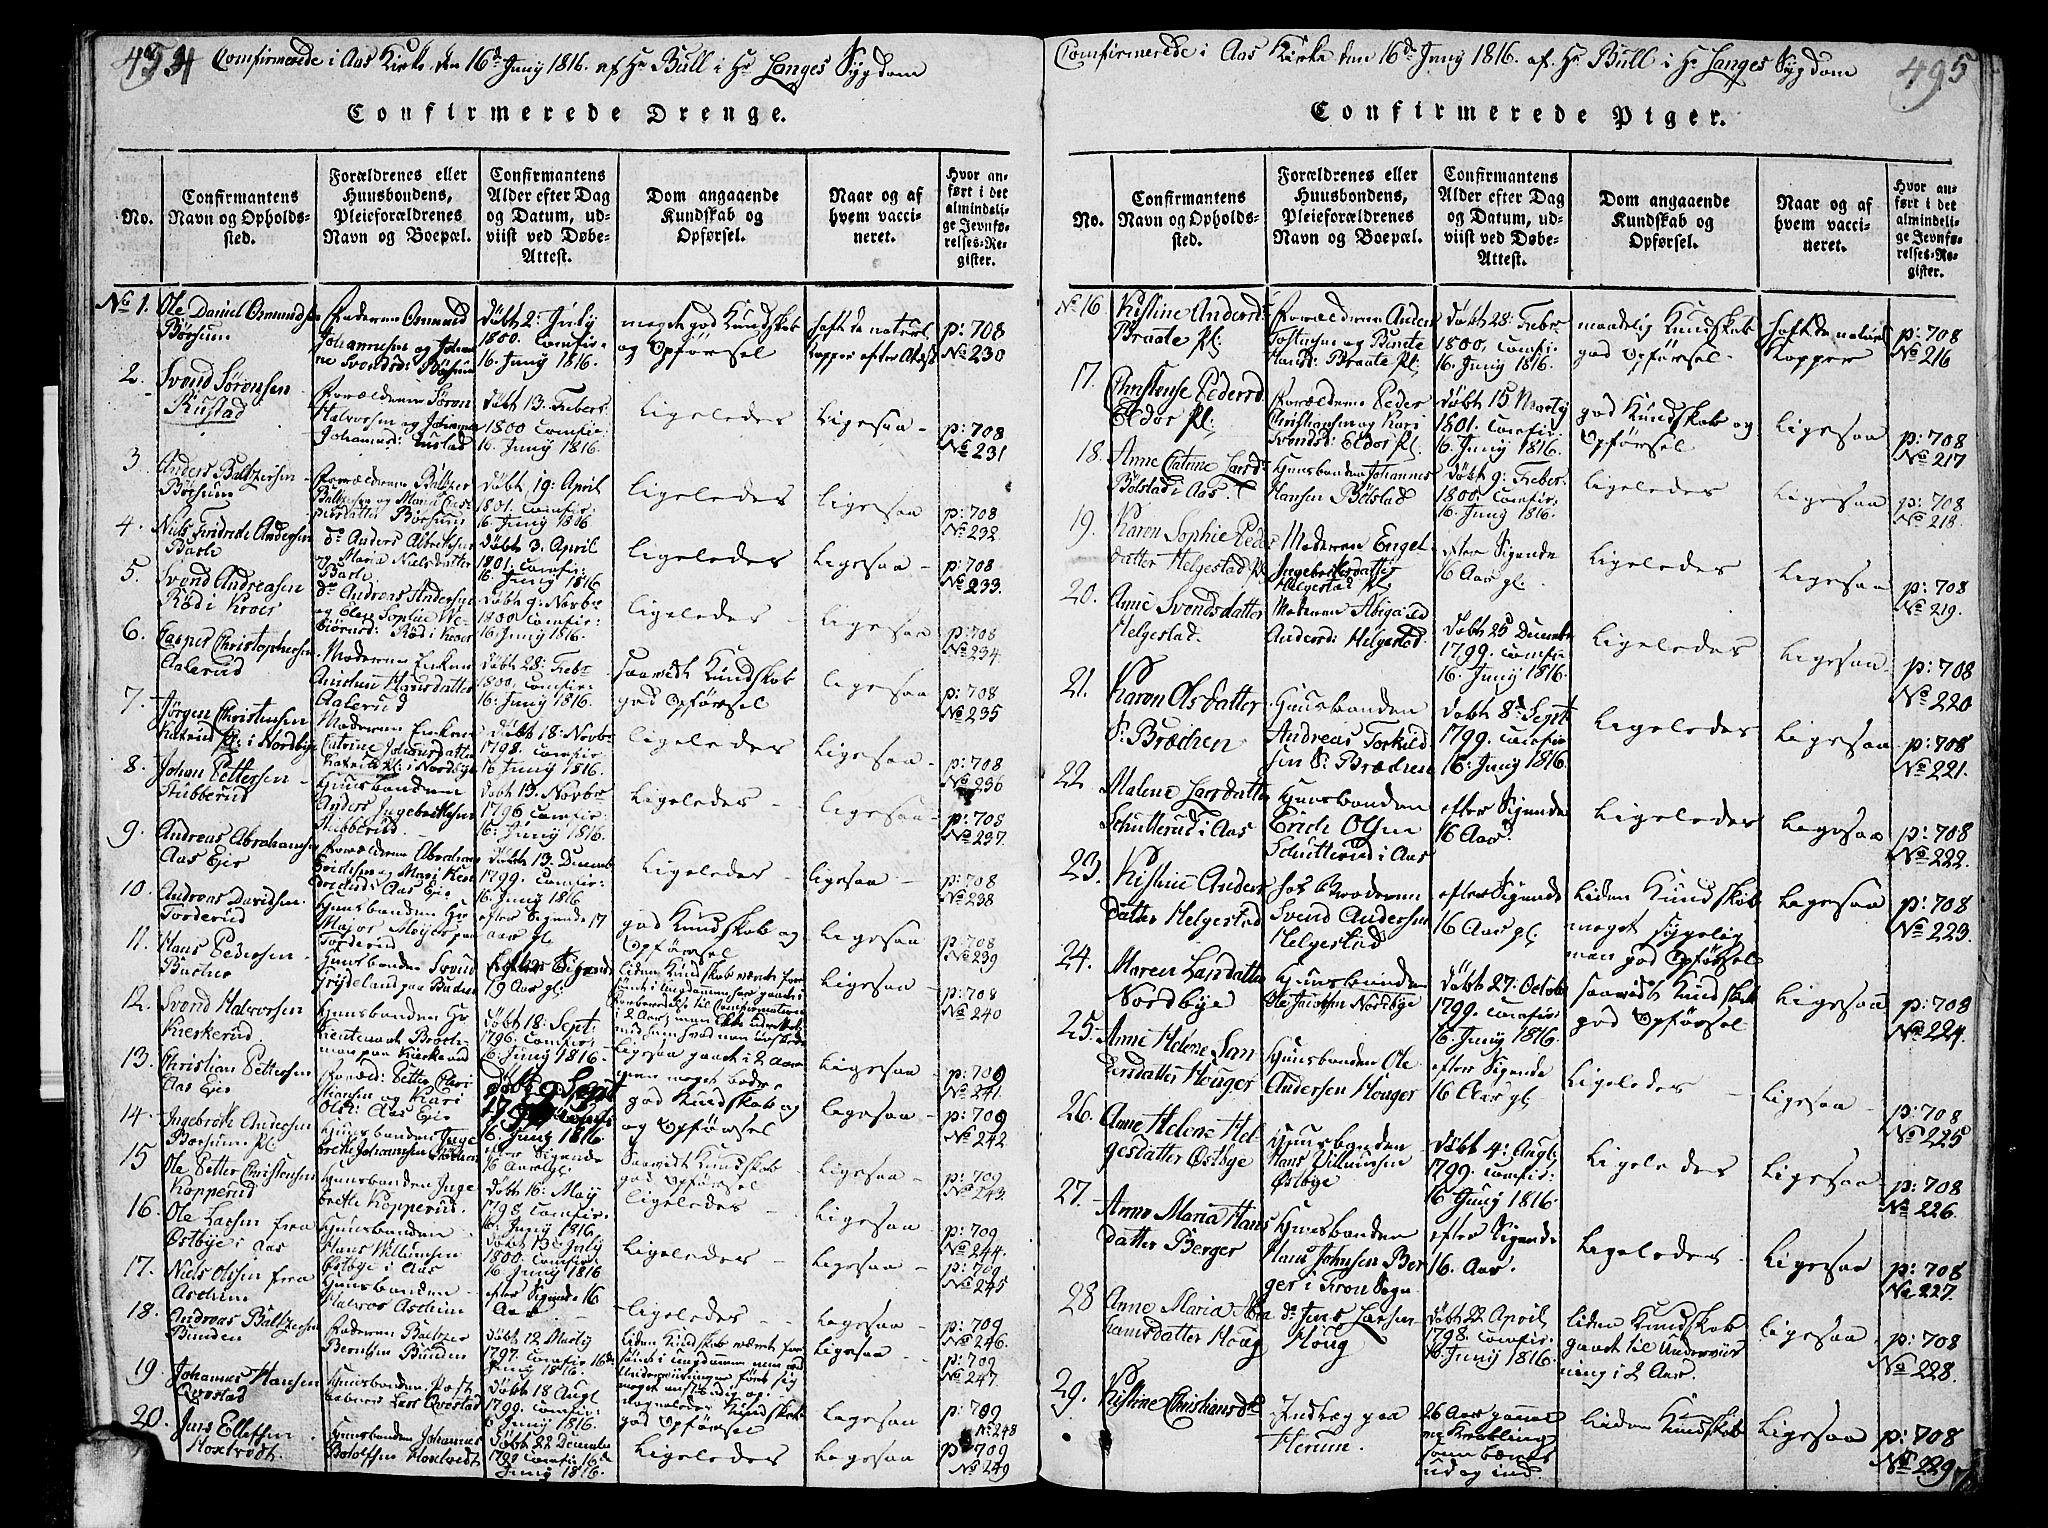 494
Comfirmerede i Aas Kirke den 16d Juny 1816. af Hr Bull i Hr Langes Sygdom
Confirmerede Drenge.
No.
Confirmantens
Navn og Opholds-
sted.
Forældrenes eller
Huusbondens,
Pleieforældrenes
Navn og Boepæl.
Confirmantens
Alder efter Dag
og Datum, ud-
viist ved Døbe-
Attest.
Dom angaaende
Kundskab og
Opførsel.
Naar og af
hvem vacci-
neret.
Hvor an-
ført i det
almindeli-
ge Jevnfø-
relses-Re-
gister.
No 1. Ole Daniel Osmundsen
Børsum
Faderen Osmund
Johannesen og Johan-
ne Svendsd: Børsum
døbt 2: July
1800. Comfir-
16. Juny 1816.
meget god Kundskab
og Opførsel
haft de naturl
kopper efter
p: 708
No 230
2. Svend Sørensen
Rustad
Forældrene Søren
Halvorsen og Johanne
Johannesd: Rustad
døbt 13. Febr:
1800 Comfir:
16. Juny 1816.
Ligeledes
Ligesaa
p: 708
No 231
3. Anders Baltzersen
Børsum
Forældrene Baltzer
Baltzersen og Maria Cas-
persdatter Børsum
døbt 19: April
1801. Comfir:
16. Juny 1816
Ligeledes
Ligesaa
p: 708
No 232
4. Niels Fredrich Andersen
do Anders
og Maria Nielsdatter
døbt 3. April
1801. Comfir:
16. Juny 1816
Ligeledes
Ligesaa
p: 708
No 233.
5. Svend Andreasen
Rød i Kroer
do Andreas Andersen
og Elen Sophie
Rød i Kroer
døbt 9: Novbr
1800 Comfir:
16 Juny 1816.
Ligeledes
Ligesaa
p: 708
No 234.
6. Casper Christophersen
Aalerud
Moderen Enken
Hansdatter
Aalerud
døbt 28: Febr
1800. Comfir:
16. Juny 1816.
saavidt Kundskab
god Opførsel
Ligesaa
p: 708
No 235
7. Jørgen Christensen
i Nordbye
Moderen Enken
Catrine Johansdatter
pl: i Nordbye
døbt 18: Novbr
1798. Comfir:
16 Juny 1816.
Ligeledes
Ligesaa
p: 708
No 236
8. Johan Pettersen
Stubberud
Huusbonden
Anders Ingebrethsen
Stubberud
døbt 13. Novbr
1796 Comfir:
16: Juny 1816.
Ligeledes
Ligesaa
p: 708
No 237.
9. Andreas Abrahamsen
Aas Eje
Forældrene Abraham
og Mari
Aas Eje
døbt 13. Decemb
1799. Comfir:
16. Juny 1816
Ligeledes
Ligesaa
p: 708
No 238
10. Andreas Davidsen
Torderud
Huusbonden Hr
Major Meyer paa
Torderud
efter Sigende 17
aar gl
god Kundskab og
Opførsel
Ligesaa
p: 708
No 239
11. Hans Pedersen
Huusbonden Svend
efter Sigende
19 Aar gl:
liden Kundskab
Ligesaa
p: 708
No 240
12. Svend Halvorsen
Kierkerud
Huusbonden Hr
Lieutenant
paa Kierkerud
døbt 18: Sept:
1796. Comfir:
16. Juny 1816.
Ligesaa gaaet i 2 Aar
men meget bedre
Ligesaa
p: 709
No 241.
13. Christian Pettersen
Aas Eje
Foræld: Petter Chri
stiansen og Kari
Olsd: Aas Eje
Sept
16. Juny 1816.
god Kundskab og
og Opførsel
Ligesaa
p: 709
No 242
14. Ingebreth Andersen
Børsum pl.
Huusbonden Inge
breth Johannesen
efter Sigende
16 Aar gl:
Saavidt Kundskab
god Opførsel
Ligesaa
p: 709
No 243.
15 Ole Petter Christensen
Kopperud
Huusbonden Inge
breth Kopperud.
døbt 16: May
1798. Comfir:
16. Juny 1816
Ligeledes
Ligesaa
p: 709
No 244.
16. Ole Larsen fra
Østbye i Aas
Huusbonden
Hans Willumsen
Østbye i Aas
døbt 13: July
1800. Comfir:
16 Juny 1816
Ligeledes
Ligesaa
p: 709
No 245
17. Niels Olssen fra
Askeim
Huusbonden
Halvor Askeim
efter Sigende 16
Aar
Ligeledes
Ligesaa
p: 709
No 246.
18. Andreas Baltzersen
Bunden
Faderen Baltzer
Berntsen Bunden
døbt 12 Marty
1797. Comfir 16de
Juny 1816.
liden Kundskab
Ligesaa
p: 709
No 247.
19. Johannes Hansen
Qvestad
Huusbonden
Lars Qvestad
døbt 18 Augl
1799. Comfir:
16 Juny 1816.
Kundskab
god Opførsel
Ligesaa
p: 709
No 248
20. Jens Ellefsen
Huusbonden Johannes
døbt 22 Decembr
1799 Comfir 16de
Juny 1816.
Ligeledes
Ligesaa
p: 709
No 249
495
Comfirmerede i Aas Kirke den 16de Juny 1816. af Hr Bull i Hr Langes Sygdom
Confirmerede Piger.
No.
Confirmantens
Navn og Opholds-
sted.
Forældrenes eller
Huusbondens,
Pleieforældrenes
Navn og Boepæl.
Confirmantens
Alder efter Dag
og Datum, ud-
viist ved Døbe-
Attest.
Dom angaaende
Kundskab og
Opførsel.
Naar og af
hvem vacci-
neret.
Hvor an-
ført i det
almindeli-
ge Jevnfø-
relses-Re-
gister.
No 16 Kistine Andersd:
Braate pl:
Forældrene Anders
og Birte
Hansd: Braate pl:
døbt 28: Febr
1800. Comfir:
16. Juny 1816.
maadelig Kundskab
god Opførsel
haft de naturl
Kopper
p: 708
No 216
17. Christense Pedersd
Eldor pl:
Forældrene Peder
Christiansen og Kari
Svendsd: Eldor pl.
døbt 15 Marty
1801. Comfir
16. Juny 1816.
god Kundskab og
Opførsel
Ligesaa
p: 708
No 217
18. Anne Catrine Larsd:
Bølstad i Aas.
Huusbonden Johannes
Hansen Bølstad
døbt 9: Febr
1800. Comfir:
16. Juny 1816.
Ligeledes
Ligesaa
p: 708
No 218.
19. Karen Sophie Peders
datter Helgestad pl
Moderen Engel
Ingebrethsdatter
Helgestad pl:
efter Sigende
16 Aar gl:
Ligeledes
Ligesaa
p: 708
No 219.
20. Anne Svendsdatter
Helgestad.
Moderen Abigael
Andersd: Helgestad.
døbt 25 Decembr
1799. Comfir
16. Juny 1816.
Ligeledes
Ligesaa
p: 708
No 220
21. Karen Olsdatter
S: Brækken
Huusbonden
Andreas Torkild
sen S: Brækken
døbt 8de Sept
1799. Comfir:
16: Juny 1816.
Ligeledes
Ligesaa
p: 708
No 221.
22. Malene Larsdatter
Schutterud i Aas
Huusbonden
Erich Olsen
Schutterud i Aas
efter Sigende
16 Aar
Ligeledes
Ligesaa
p: 708
No 222.
23. Kistine Anders
datter Helgestad
hos Broderen
Svend Andersen
Helgestad
efter Sigende
16 Aar gl:
Liden Kundskab
meget sygelig
men god Opførsel
Ligesaa
p: 708
No 223.
24. Maren Larsdatter
Nordbye
Huusbonden
Ole Jacobsen Nordbye
døbt 27: Octobr
1799. Comfir
16. Juny 1816.
saavidt Kundskab
god Opførsel
Ligesaa
p: 708
No 224.
25. Anne Helene Lan
dersdatter Houger
Huusbonden Ole
Andersen Houger
efter Sigende
16 Aar gl:
Ligeledes
Ligesaa
p: 708
No 225
26. Anne Helene Hel
gesdatter Østbye
Huusbonden
Hans Villumsen
Østbye
døbt 4: Augl
1799. Comfir:
16 Juny 1816.
Ligeledes
Ligesaa
p: 708
No 226.
27. Anne Maria Hans
datter Berger
Huusbonden
Hans Johnsen Ber
ger i Kroer Sogn
efter Sigende
16. Aar.
Ligeledes
Ligesaa
p: 708
No 227.
28 Anne Maria Abra
hamsdatter Houg
do Jens Larsen
Houg
døbt 22 April
1798. Comfir.
16 Juny 1816.
liden Kundskab
gaaet til Underviis
ning i 2 Aar.
Ligesaa
p: 708
No 228.
29. Kistine Christiansdr
Indlæg paa
Herum.
26 Aar gammel
en Krøbling
som bæres
ud og ind
Liden Kundskab
Ligesaa
p: 708
No 229